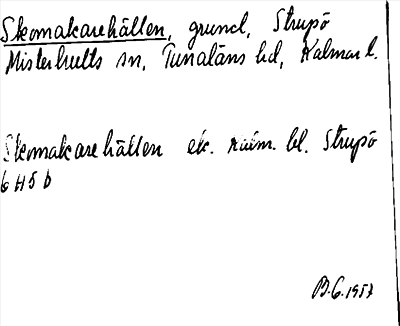 Skomakarehällen, grund, Strupö
Misterhults sn, Tunaläns hd, Kalmar l.
Skomakarehällen ek. bl. Strupö
6 H 5 b
B.G. 1957